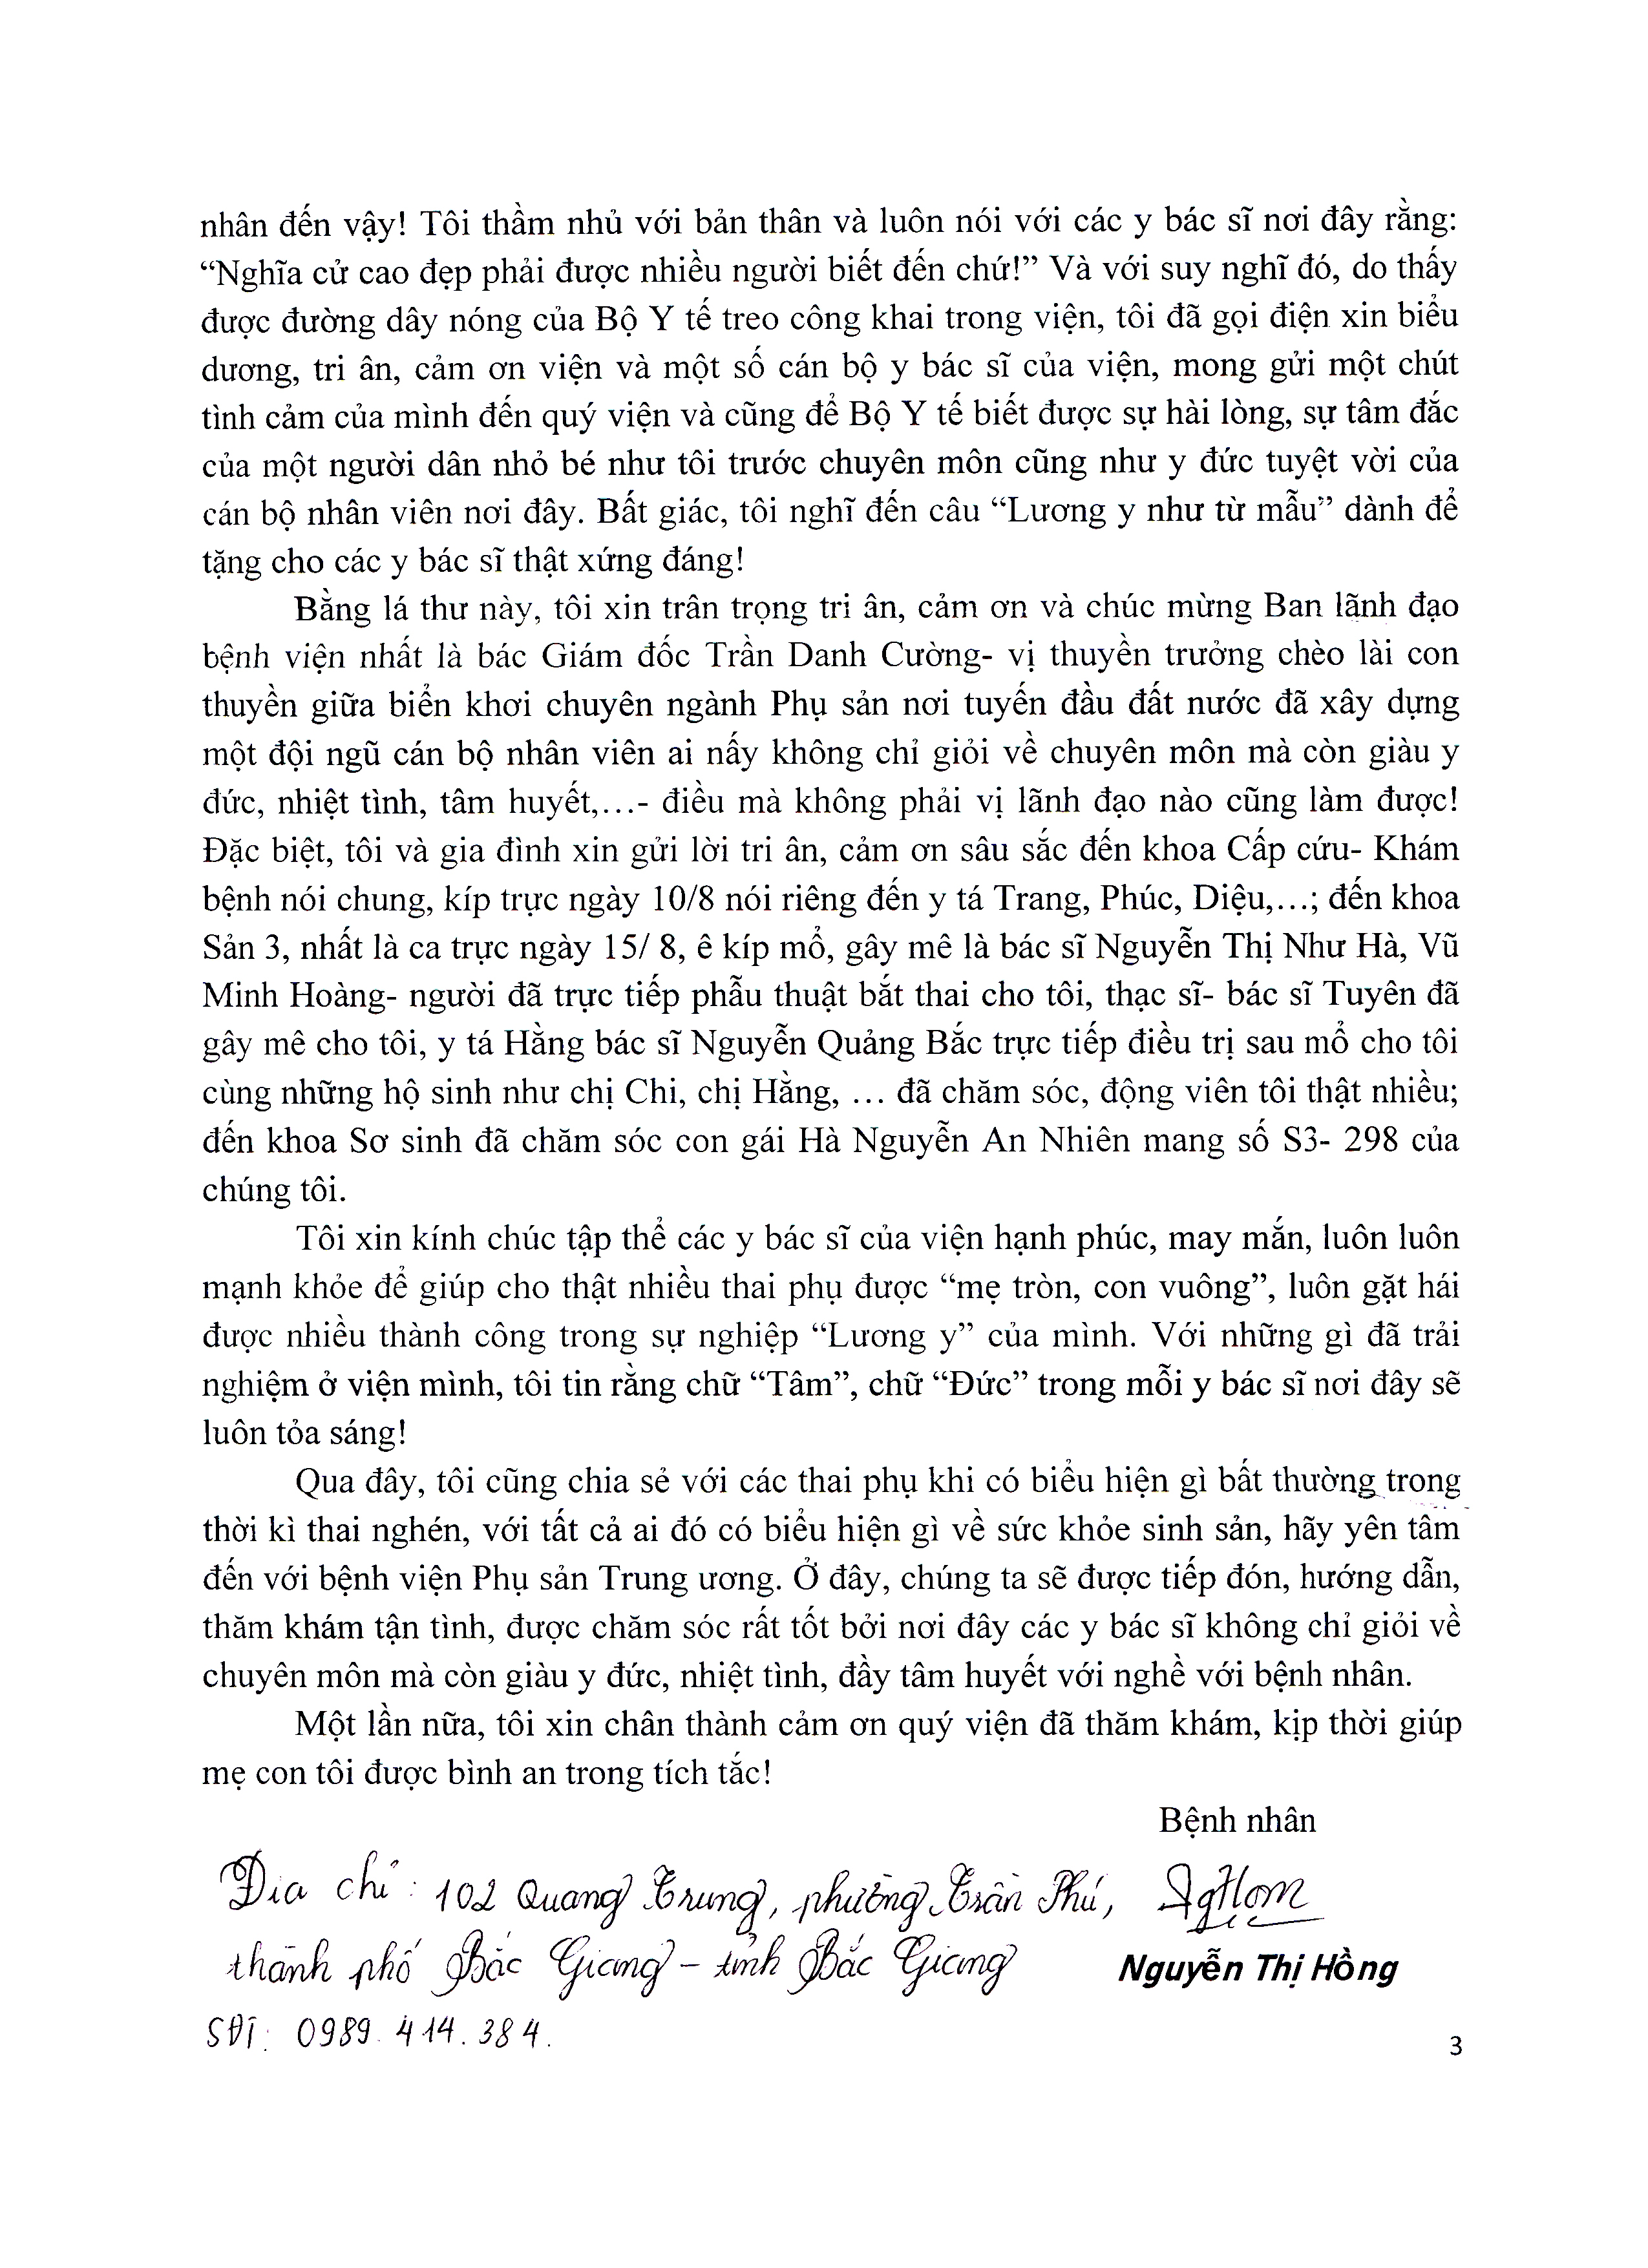 nhân đến vậy! Tôi thầm nhủ với bản thân và luôn nói với các y bác sĩ nơi đây rằng:
“Nghĩa cử cao đẹp phải được nhiều người biết đến chứ!” Và với suy nghĩ đó, do thấy
được đường dây nóng của Bộ Y tế treo công khai trong viện, tôi đã gọi điện xin biểu
dương, tri ân, cảm ơn viện và một số cán bộ y bác sĩ của viện, mong gửi một chút
tình cảm của mình đến quý viện và cũng để Bộ Y tế biết được sự hài lòng, sự tâm đắc
của một người dân nhỏ bé như tôi trước chuyên môn cũng như y đức tuyệt vời của
cán bộ nhân viên nơi đây. Bất giác, tôi nghĩ đến câu “Lương y như từ mẫu” dành để
tặng cho các y bác sĩ thật xứng đáng!
Bằng lá thư này, tôi xin trân trọng tri ân, cảm ơn và chúc mừng Ban lãnh đạo
bệnh viện nhất là bác Giám đốc Trần Danh Cường- vị thuyền trưởng chèo lái con
thuyền giữa biển khơi chuyên ngành Phụ sản nơi tuyến đầu đất nước đã xây dựng
một đội ngũ cán bộ nhân viên ai nấy không chỉ giỏi về chuyên môn mà còn giàu y
đức, nhiệt tình, tâm huyết,...- điều mà không phải vị lãnh đạo nào cũng làm được!
Đặc biệt, tôi và gia đình xin gửi lời tri ân, cảm ơn sâu sắc đến khoa Cấp cứu- Khám
bệnh nói chung, kíp trực ngày 10/8 nói riêng đến y tá Trang, Phúc, Diệu,...; đến khoa
Sản 3, nhất là ca trực ngày 15/ 8, ê kíp mổ, gây mê là bác sĩ Nguyễn Thị Như Hà, Vũ
Minh Hoàng- người đã trực tiếp phẫu thuật bắt thai cho tôi, thạc sĩ- bác sĩ Tuyên đã
gây mê cho tôi, y tá Hằng bác sĩ Nguyễn Quảng Bắc trực tiếp điều trị sau mổ cho tôi
cùng những hộ sinh như chị Chi, chị Hằng, ... đã chăm sóc, động viên tôi thật nhiều;
đến khoa Sơ sinh đã chăm sóc con gái Hà Nguyễn An Nhiên mang số S3- 298 của
chúng tôi.
Tôi xin kính chúc tập thể các y bác sĩ của viện hạnh phúc, may mắn, luôn luôn
mạnh khỏe để giúp cho thật nhiều thai phụ được “mẹ tròn, con vuông”, luôn gặt hái
được nhiều thành công trong sự nghiệp “Lương y” của mình. Với những gì đã trải
nghiệm ở viện mình, tôi tin rằng chữ “Tâm”, chữ “Đức” trong mỗi y bác sĩ nơi đây sẽ
luôn tỏa sáng!
Qua đây, tôi cũng chia sẻ với các thai phụ khi có biểu hiện gì bất thường trong
thời kì thai nghén, với tất cả ai đó có biểu hiện gì về sức khỏe sinh sản, hãy yên tâm
đến với bệnh viện Phụ sản Trung ương. Ở đây, chúng ta sẽ được tiếp đón, hướng dẫn,
thăm khám tận tình, được chăm sóc rất tốt bởi nơi đây các y bác sĩ không chỉ giỏi về
chuyên môn mà còn giàu y đức, nhiệt tình, đầy tâm huyết với nghề với bệnh nhân.
Một lần nữa, tôi xin chân thành cảm ơn quý viện đã thăm khám, kịp thời giúp
mẹ con tôi được bình an trong tích tắc!
Bệnh nhân
Địa chỉ: 102 Quang Trung, phường Trần Phú,
thành phố Bắc Giang - tỉnh Bắc Giang
Nguyễn Thị Hồng
SĐT: 0989.414.384.
3